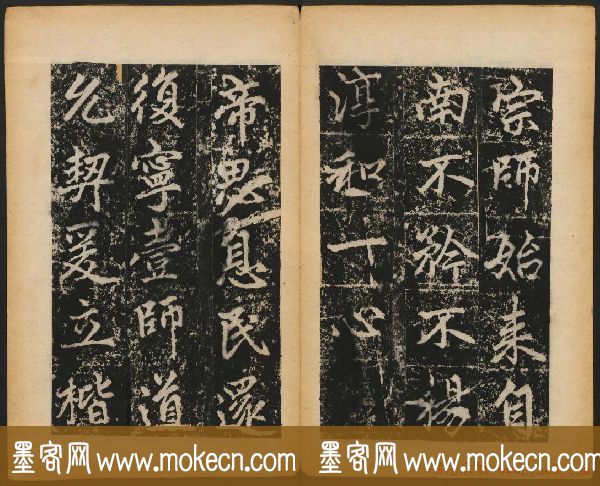 宗師始来自
南不矜不揚
淳和一心
帝思息民還
復寧壹師道
允契爰立楷
墨客网 www.mokecn.com 墨客网 www.mokecn.com